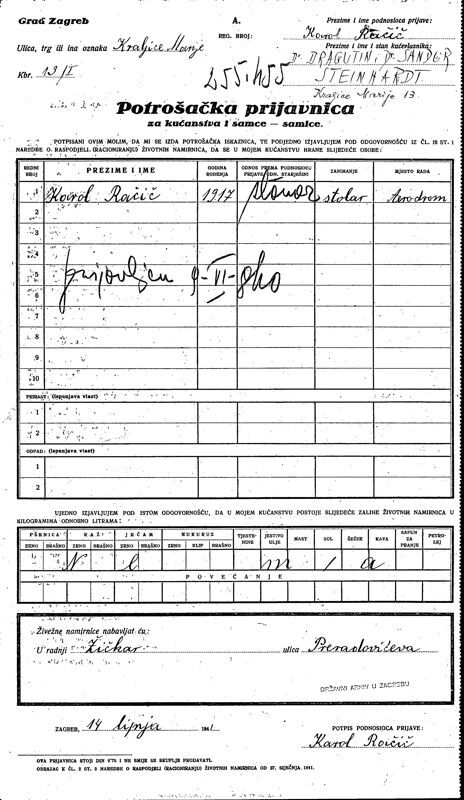 Grad Zagreb
A.
REG. BROJ:
Prezime i ime podnosioca prijave:
Karol Račić
Ulica, trg ili ina oznaka Kraljice Marije
Prezime i ime i stan kućevlasnika:
Dr DRAGUTIN, Dr SANDOR
STEINHARDT
Kraljice Marije 13
Kbr. 13/II
255.455
Potrošačka prijavnica
za kućanstva i samce — samice.
POTPISANI OVIM MOLIM, DA MI SE IZDA POTROŠAČKA ISKAZNICA, TE PODJEDNO IZJAVLJUJEM POD ODGOVORNOŠĆU IZ ČL. 18 ST. 1
NAREDBE O RASPODJELI (RACIONIRANJU) ŽIVOTNIH NAMIRNICA, DA SE U MOJEM KUĆANSTVU HRANE SLIJEDEĆE OSOBE:
REDNI BROJ PREZIME I IME GODINA ROĐENJA ODNOS PREMA PODNOSIOCU PRIJAVE ODN. STARJEŠINI ZANIMANJE MJESTO RADA
1 Karol Račić 1917 stanar stolar Aerodrom
2
3
4
5
6
prijavljen 9-VI-
7
8
9
10
PRIRAST: (ispunjava vlast)
1
2
OTPAD: (ispunjava vlast)
1
2
UJEDNO IZJAVLJUJEM POD ISTOM ODGOVORNOŠĆU, DA U MOJEM KUĆANSTVU POSTOJE SLIJEDEĆE ZALIHE ŽIVOTNIH NAMIRNICA U
KILOGRAMIMA ODNOSNO LITRAMA:
PŠENICA RAŽ JEČAM KUKURUZ TJESTENINE JESTIVO ULJE MAST SOL ŠEĆER KAVA SAPUN ZA PRANJE PETROLEJ
ZRNO BRAŠNO ZRNO BRAŠNO ZRNO BRAŠNO ZRNO KLIP BRAŠNO
N e m / a
POVEĆANJE
Živežne namirnice nabavljat ću:
U radnji Žičkar ulica Preradovićeva
DRŽAVNI ARHIV U ZAGREBU
ZAGREB, 14 lipnja 1941
POTPIS PODNOSIOCA PRIJAVE:
Karol Račić
OVA PRIJAVNICA STOJI DIN 0·75 I NE SMIJE SE SKUPLJE PRODAVATI.
OBRAZAC K ČL. 2 ST. 3 NAREDBE O RASPODJELI (RACIONIRANJU) ŽIVOTNIH NAMIRNICA OD 27. SIJEČNJA 1941.